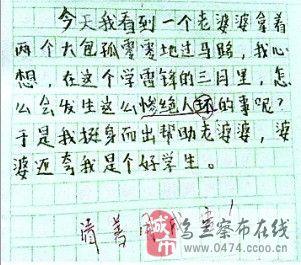 今天我看到一个老婆婆拿着
两个大包孤零零地过马路，我心
想，在这个学雷锋的三月里，怎
么会发生这么惨绝人环的事呢？
于是我挺身而出帮助老婆婆，婆
婆还夸我是个好学生。
清善
城市
乌兰察布在线
www.0474.ccoo.cn